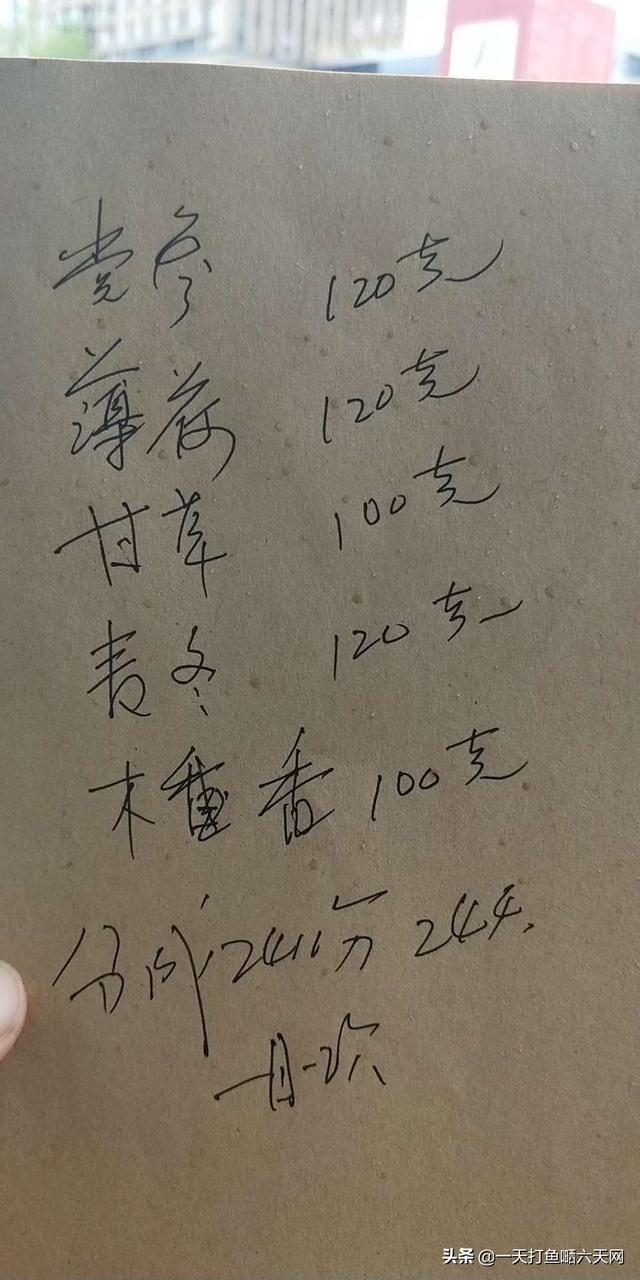 党参 120克
薄荷 120克
甘草 100克
麦冬 120克
木 香 100克
分成24份 244.
一月一次
头条 @一天打鱼嗮六天网